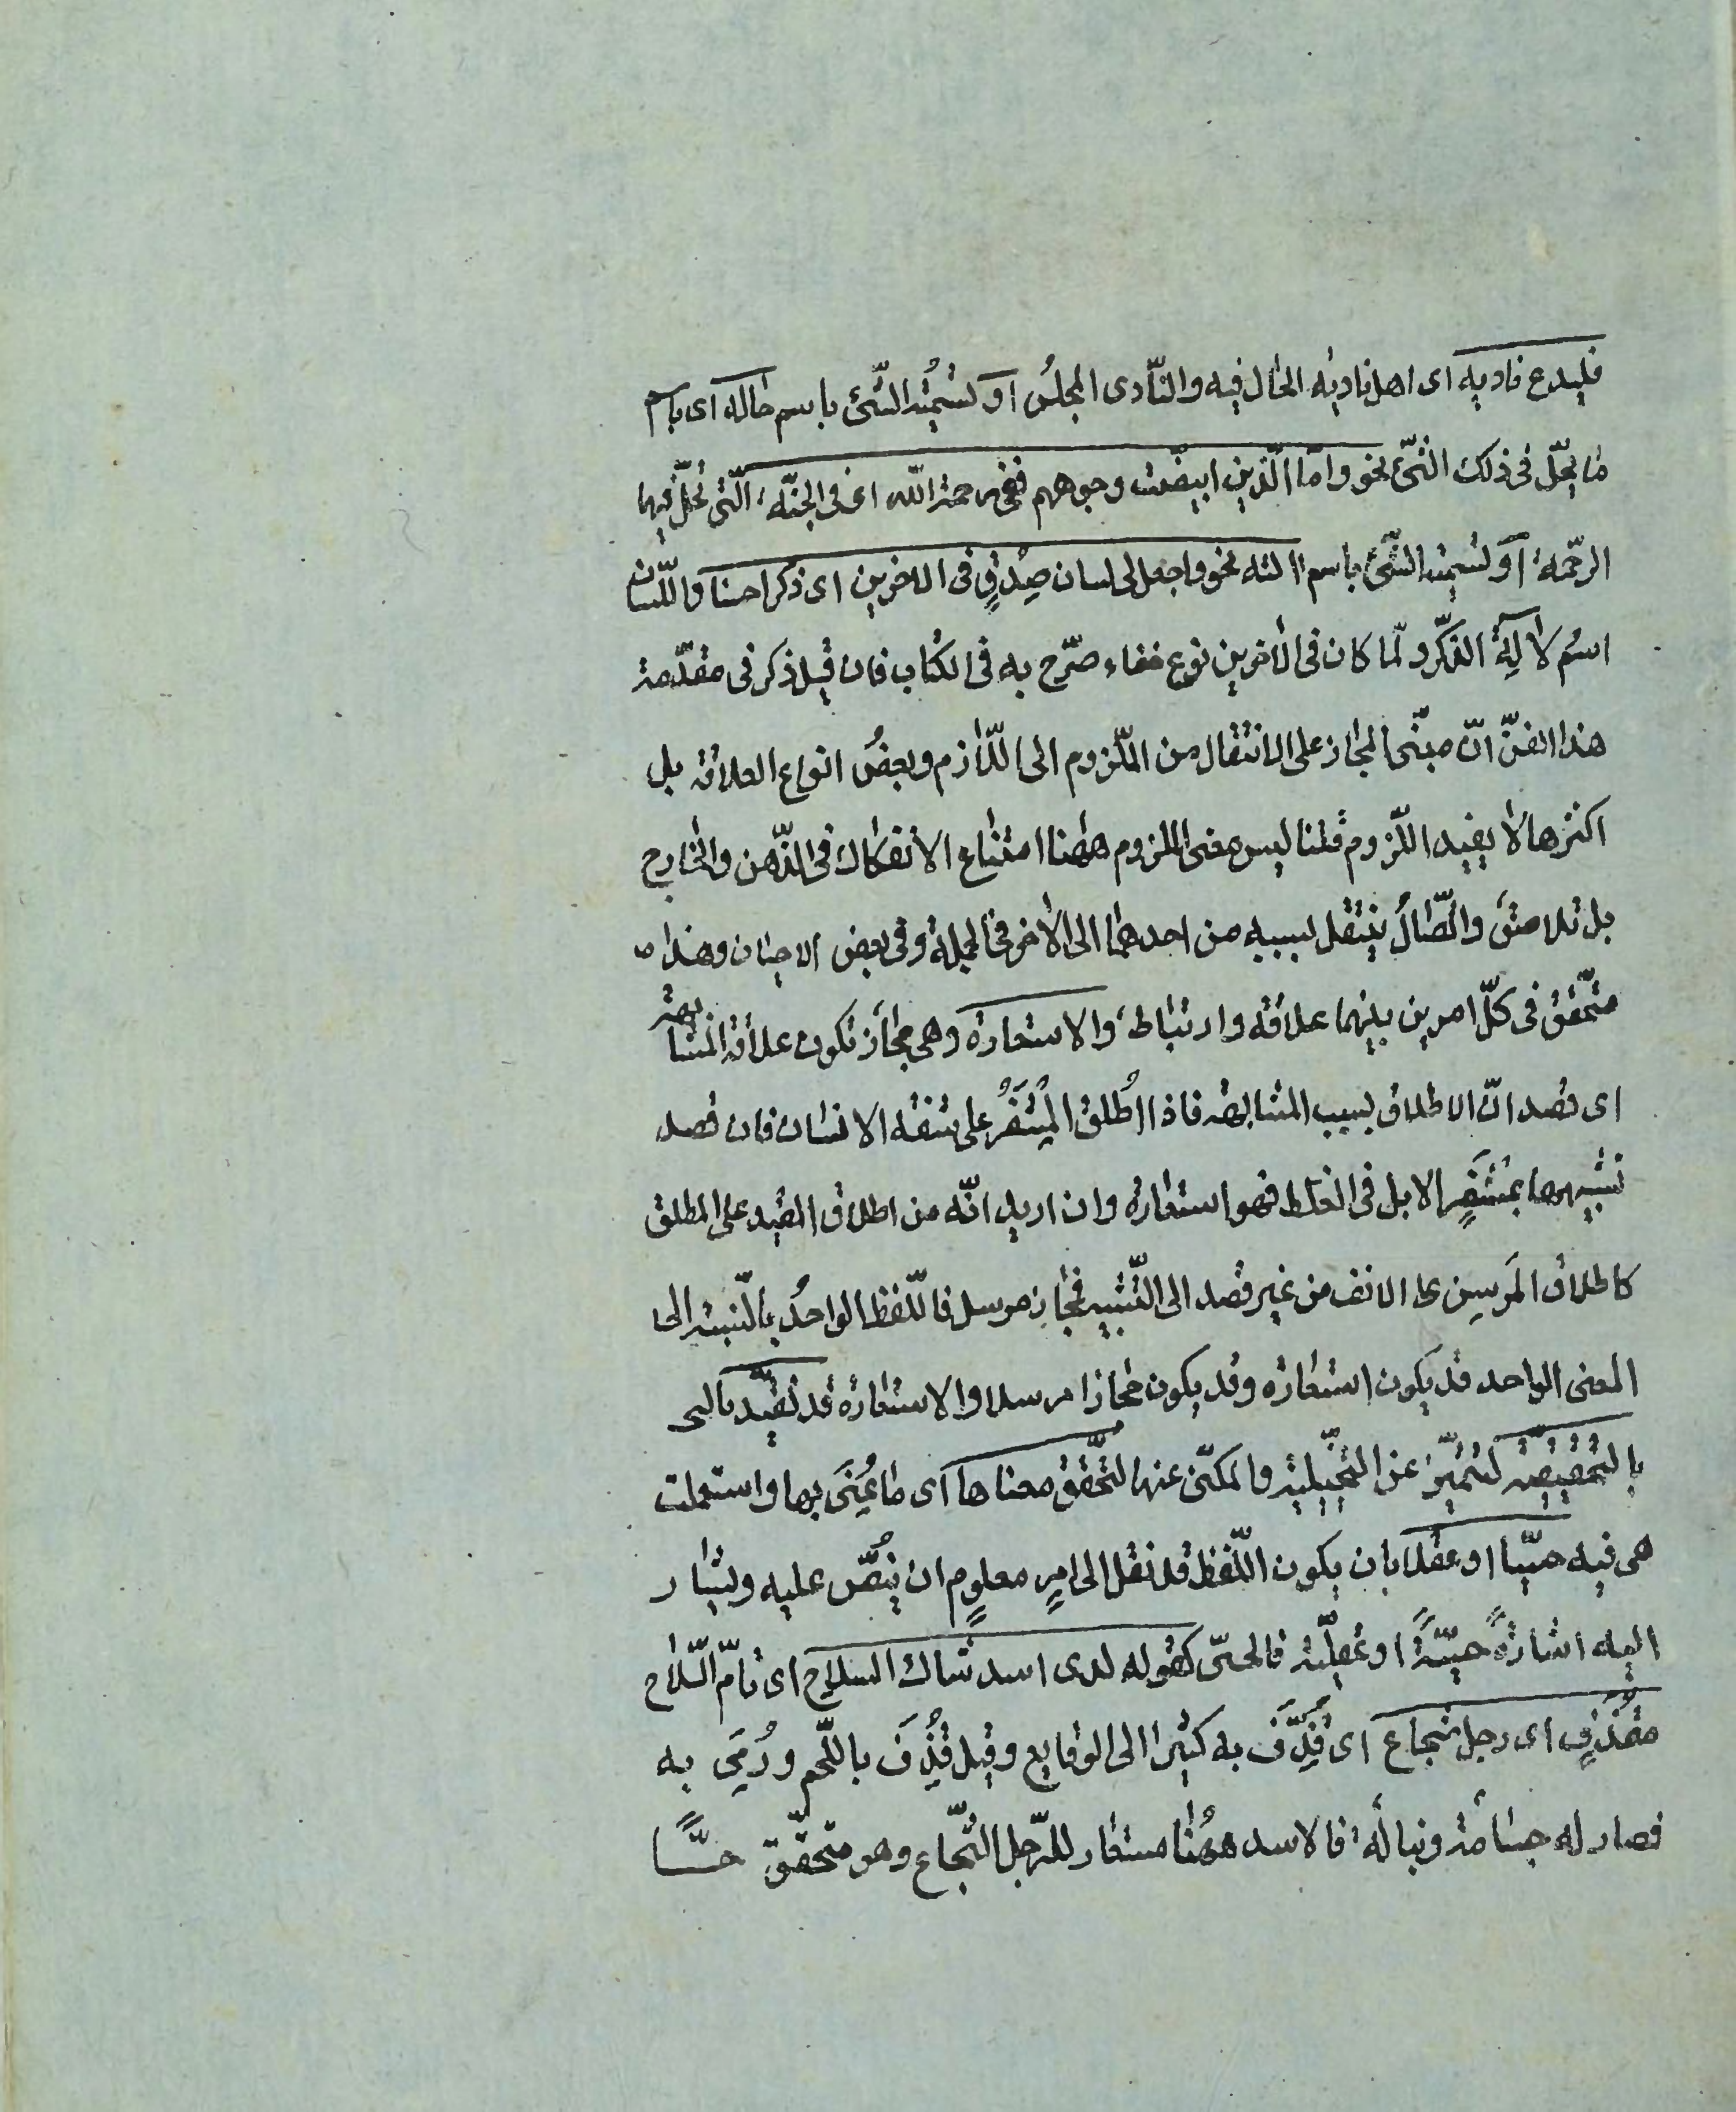 فليدع ناديه اى اهل ناديه الحال فيه والنّادى المجلسُ او تسمية الشّئ باسم حاله اى باسم
ما يحلّ فى ذلك الشّئ نحو وامّا الّذين ابيضّت وجوههم ففى رحمة الله اى فى الجنّة الّتى تحلّ فيها
الرحمة او تسمية الشّئ باسم الته نحو واجعل لى لسان صِدْقٍ فى الاخرين اى ذكرا حسنا واللّسان
اسمُ لاۤلة الذّكر ولمّا كان فى الأخرين نوع خفاء صرّح به فى الكتاب فان قيل ذكر فى مقدّمة
هذا الفنّ انّ مبنى المجاز على الانتقال من الملزوم الى اللّازم وبعضُ انواع العلاقة بل
اكثرها لا يفيد اللّزوم قلنا ليس معنى اللزوم ههنا امتناع الانفكاك فى الذّهن والخارج
بل تلاصق واتّصال ينتقل بسببه من احدهما الى الأخر فى الجملة وفى بعض الاحيان وهذا
متحقّق فى كلّ امرين بينهما علاقة وارتباط والاستعارة وهى مجاز تكون علاقته المشابهة
اى قصد انّ الاطلاق بسبب المشابهة فاذا اُطلق المِشْفَرُ على شفة الانسان فان قصد
تشبيهها بمِشْفَرِ الابل فى الغلظ فهو استعارة وان اريد انّه من اطلاق المقيد على المطلق
كاطلاق المَرسِن على الانف من غير قصد الى التّشبيه فمجاز مرسل فاللّفظ الواحدُ بالنّسبة الى
المعنى الواحد قد يكون استعارة وقد يكون مجازا مرسلا والاستعارة قد تقيّد
بالتحقيقية لتتميّز عن التخييلية والمكنّى عنها لتحقّق معناها اى ما عُنِىَ بها واستعملت
هى فيه حسّيا او عقلا بان يكون اللّفظ قد نقل الى امرٍ معلومٍ ان ينصّ عليه ويشار
اليه اشارةً حسّيّةً او عقليّة فالحسّى كقوله لدى اسد شاك السلاح اى تامّ السّلاح
مقذّفٍ اى رجل شجاع اى قُذِّفَ به كثيرا الى الوقايع وقيل قُذِفَ باللّحم ورُمِىَ به
فصار له جسامة ونبالة فالاسد ههنا مستعار للرّجل الشّجاع وهو متحقّق حسًّا